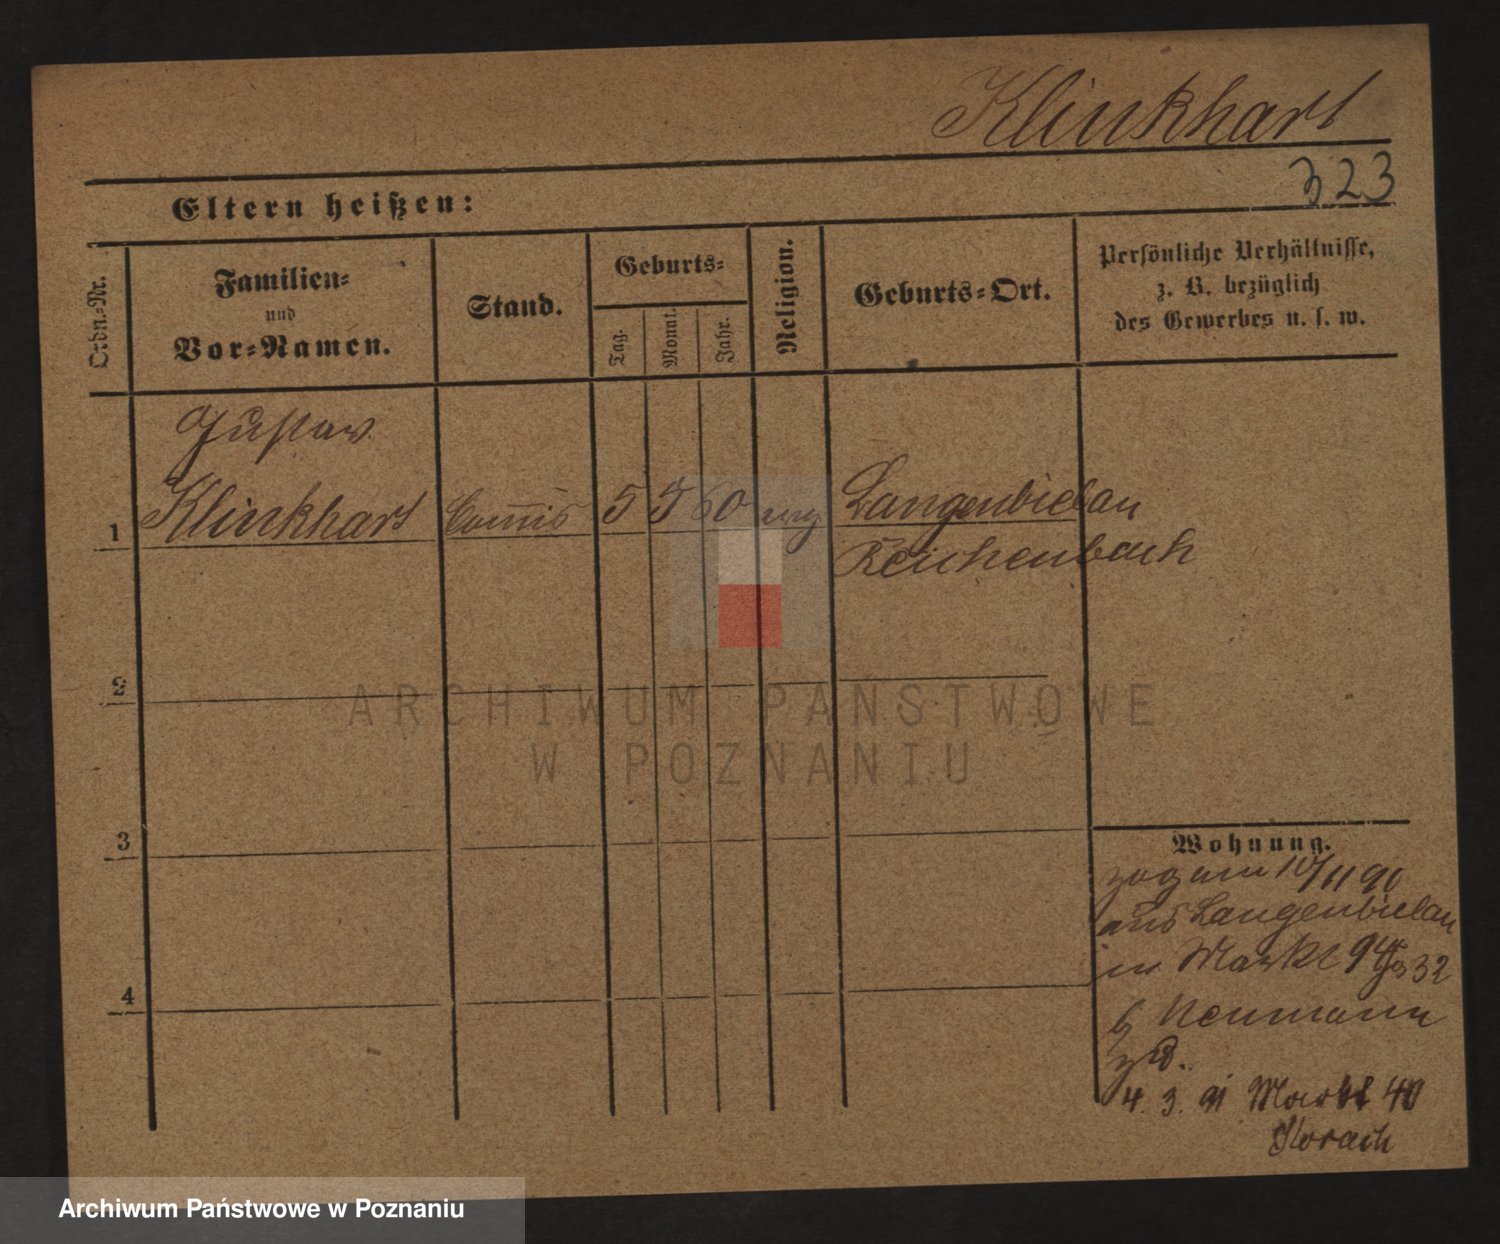 Klinkhart
323
Eltern heißen:
Ordn.-Nr.
Familien-
und
Vor-Namen.
Stand.
Geburts-
Tag.
Monat.
Jahr.
Religion.
Geburts-Ort.
Persönliche Verhältnisse,
z. B. bezüglich
des Gewerbes u. s. w.
Gustav
1 Klinkhart Commis 5 5 60 evg Langenbielau
Reichenbach
2
3
4
Wohnung.
zog am 10/11 90
aus Langenbielau
in Markt 94
b Neumann
4. 3. 91 Markt 40
ARCHIWUM PAŃSTWOWE
W POZNANIU
Archiwum Państwowe w Poznaniu